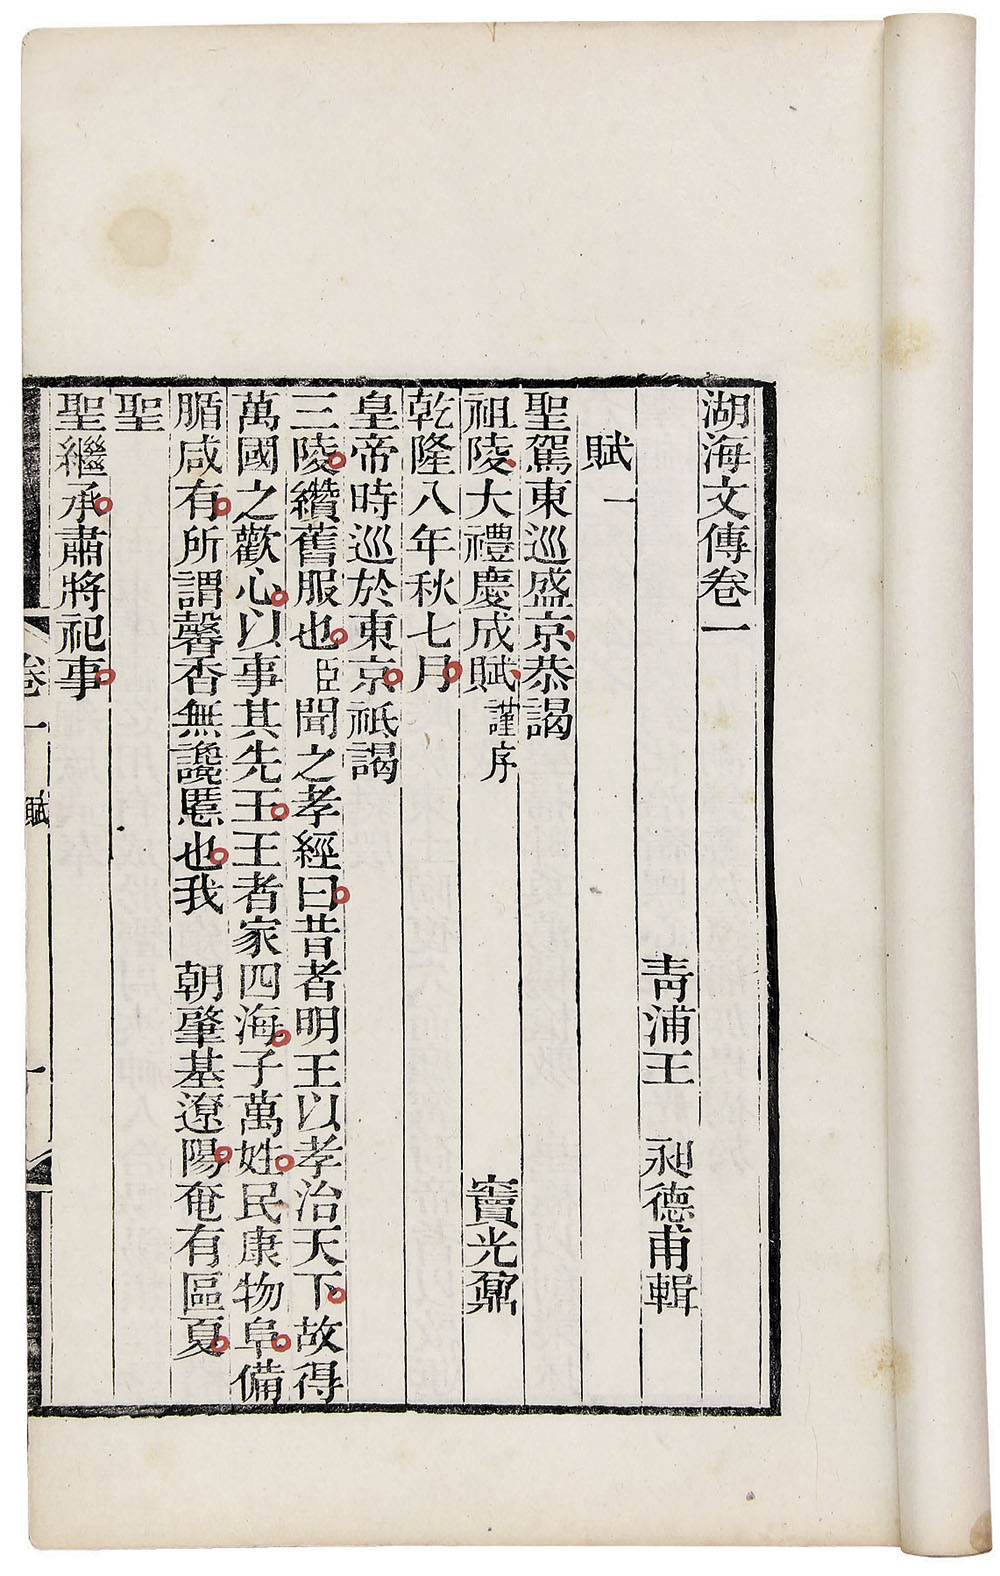 湖海文傳卷一
青浦王 昶德甫輯
賦一
聖駕東巡盛京恭謁
祖陵大禮慶成賦謹序 竇光鼐
乾隆八年秋七月
皇帝時巡於東京祇謁
三陵纘舊服也臣聞之孝經曰昔者明王以孝治天下故得
萬國之歡心以事其先王王者家四海子萬姓民康物阜備
腯咸有所謂馨香無讒慝也我 朝肇基遼陽奄有區夏
聖
聖繼承肅將祀事
卷一 賦 一